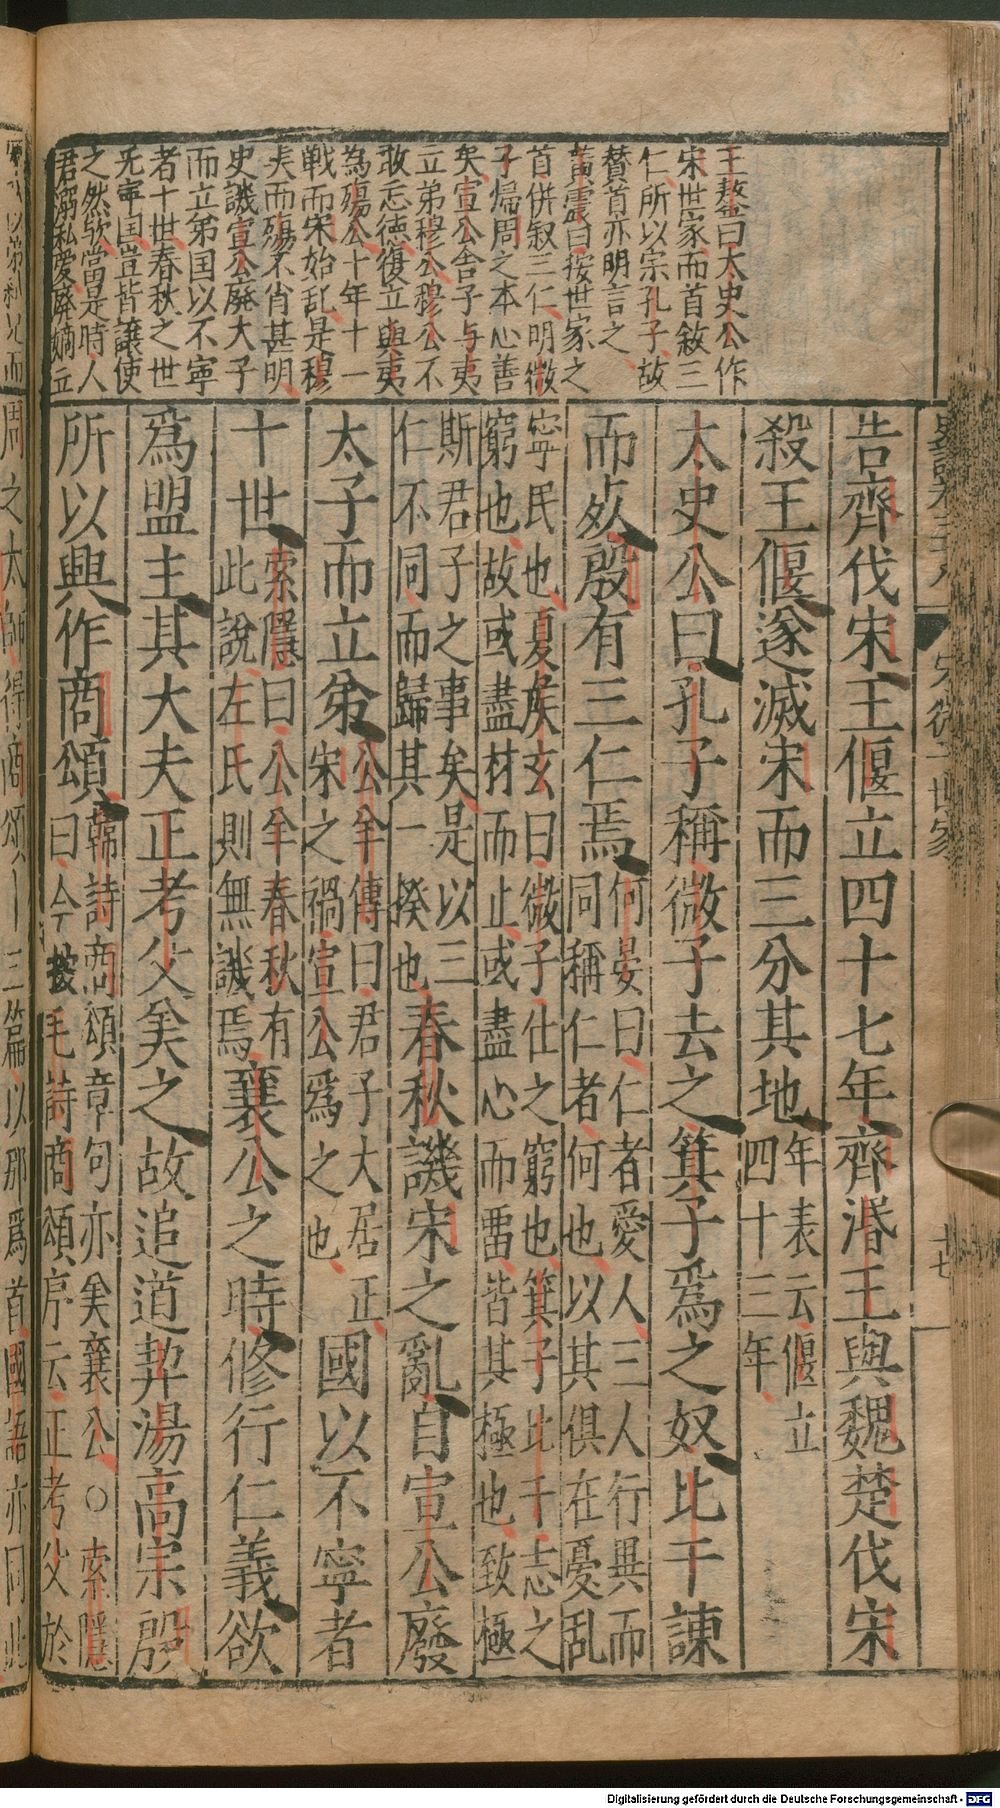 王鏊曰太史公作
宋世家而首敘三
仁所以宗孔子故
賛首亦明言之
黄震曰按世家之
首併叙三仁明微
子歸周之本心善
矣宣公舍子与夷
立弟穆公穆公不
敢忘徳復立與夷
為殤公十年十一
戦而宋始乱是穆
夫而殤不肖甚明
史譏宣公廢太子
而立弟国以不寧
者十世春秋之世
无寧国豈皆譲使
之然欤當是時人
君溺私愛廢嫡立
告齊伐宋王偃立四十七年齊湣王與魏楚伐宋
殺王偃遂滅宋而三分其地年表云偃立四十三年
太史公曰孔子稱微子去之箕子爲之奴比干諫
而死殷有三仁焉何晏曰仁者愛人三人行異而同稱仁者何也以其俱在憂乱
寧民也夏侯玄曰微子仕之窮也箕子比干志之窮也故或盡材而止或盡心而畱皆其極也致極
斯君子之事矣是以三仁不同而歸其一揆也春秋譏宋之亂自宣公廢
太子而立弟公羊傳曰君子大居正宋之禍宣公爲之也國以不寧者
十世索隱曰公羊春秋有此說左氏則無譏焉襄公之時修行仁義欲
爲盟主其大夫正考父美之故追道契湯高宗殷
所以興作商頌韓詩商頌章句亦美襄公○索隱曰今按毛詩商頌序云正考父於
周之太師得商頌十二篇以那爲首國語亦同此
宋微子世家
十七
Digitalisierung gefördert durch die Deutsche Forschungsgemeinschaft - DFG